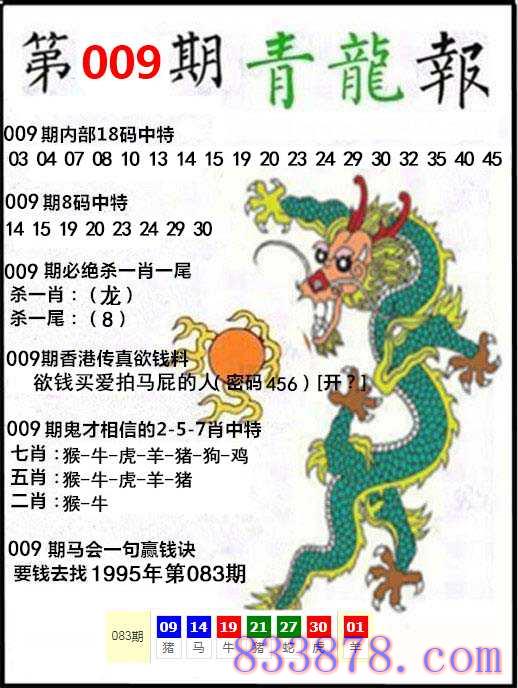 第009期 青龍報
009期内部18码中特
03 04 07 08 10 13 14 15 19 20 23 24 29 30 32 35 40 45
009期8码中特
14 15 19 20 23 24 29 30
009 期必绝杀一肖一尾
杀一肖：（龙）
杀一尾：（8）
009期香港传真欲钱料
欲钱买爱拍马屁的人（密码456）[开？]
009期鬼才相信的2-5-7肖中特
七肖：猴-牛-虎-羊-猪-狗-鸡
五肖：猴-牛-虎-羊-猪
二肖：猴-牛
009 期马会一句赢钱诀
要钱去找1995年第083期
083期 09 14 19 21 27 30 01
猪 马 牛 猪 蛇 虎 羊
833878.com